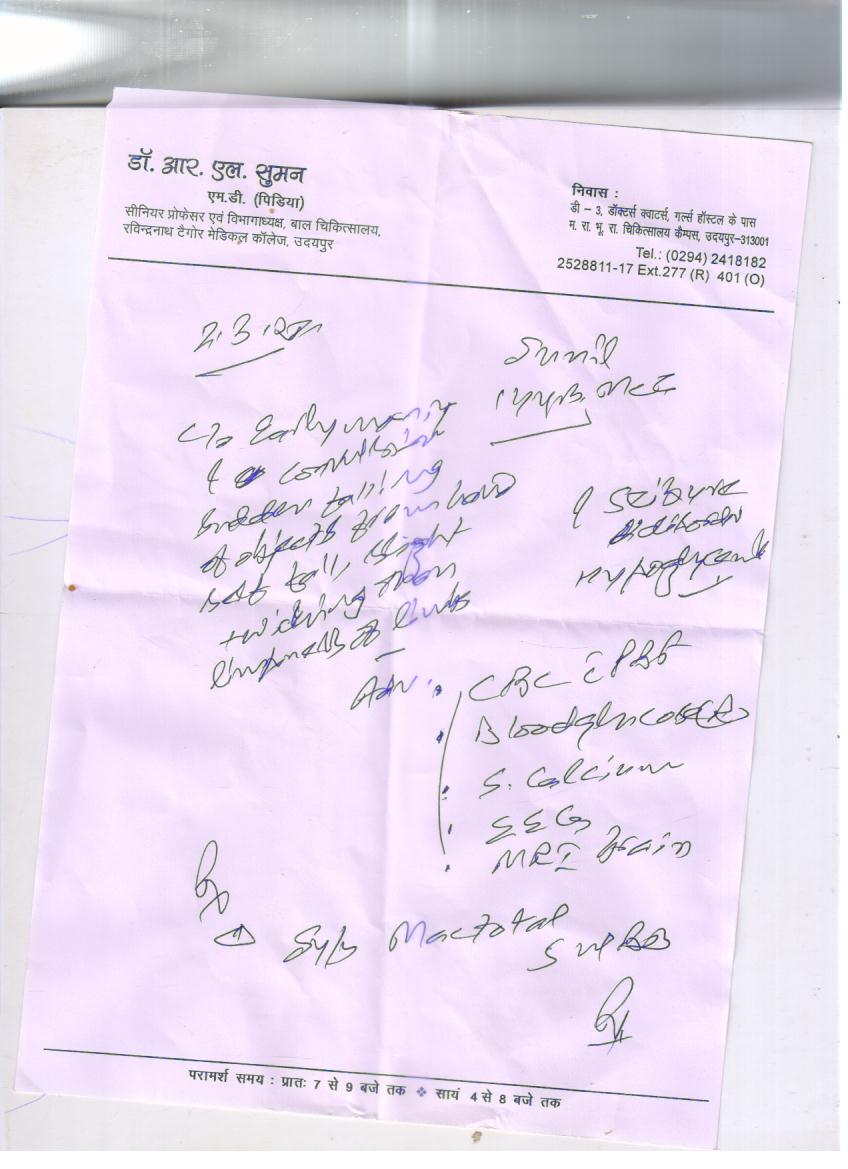 डॉ. आर. एल. सुमन
एम.डी. (पिडिया)
सीनियर प्रोफेसर एवं विभागाध्यक्ष, बाल चिकित्सालय,
रविन्द्रनाथ टैगोर मेडिकल कॉलेज, उदयपुर
निवास :
डी – 3, डॉक्टर्स क्वाटर्स, गर्ल्स हॉस्टल के पास
म. रा. भू. रा. चिकित्सालय कैम्पस, उदयपुर–313001
Tel.: (0294) 2418182
2528811-17 Ext.277 (R) 401 (O)
Sunil
C/o Early morning
sudden falling
of objects from hand
slight
twitching
limbs
? Seizure
Hypoglycemia
Adv.
CBC
Blood glucose (R)
S. Calcium
EEG
MRI Brain
Rx
① Syp Mactotal
5 ml BD
परामर्श समय : प्रातः 7 से 9 बजे तक ❖ सायं 4 से 8 बजे तक